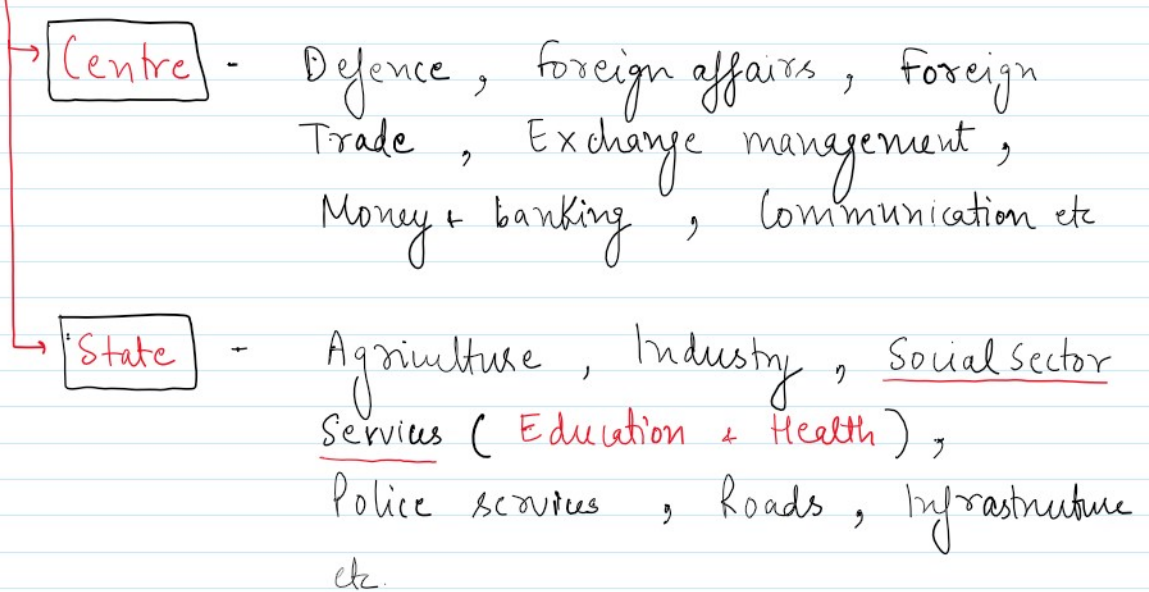 Centre - Defence, foreign affairs, Foreign
Trade, Exchange management,
Money & banking, Communication etc
State - Agriculture, Industry, Social Sector
Services (Education & Health),
Police services, Roads, Infrastructure
etc.